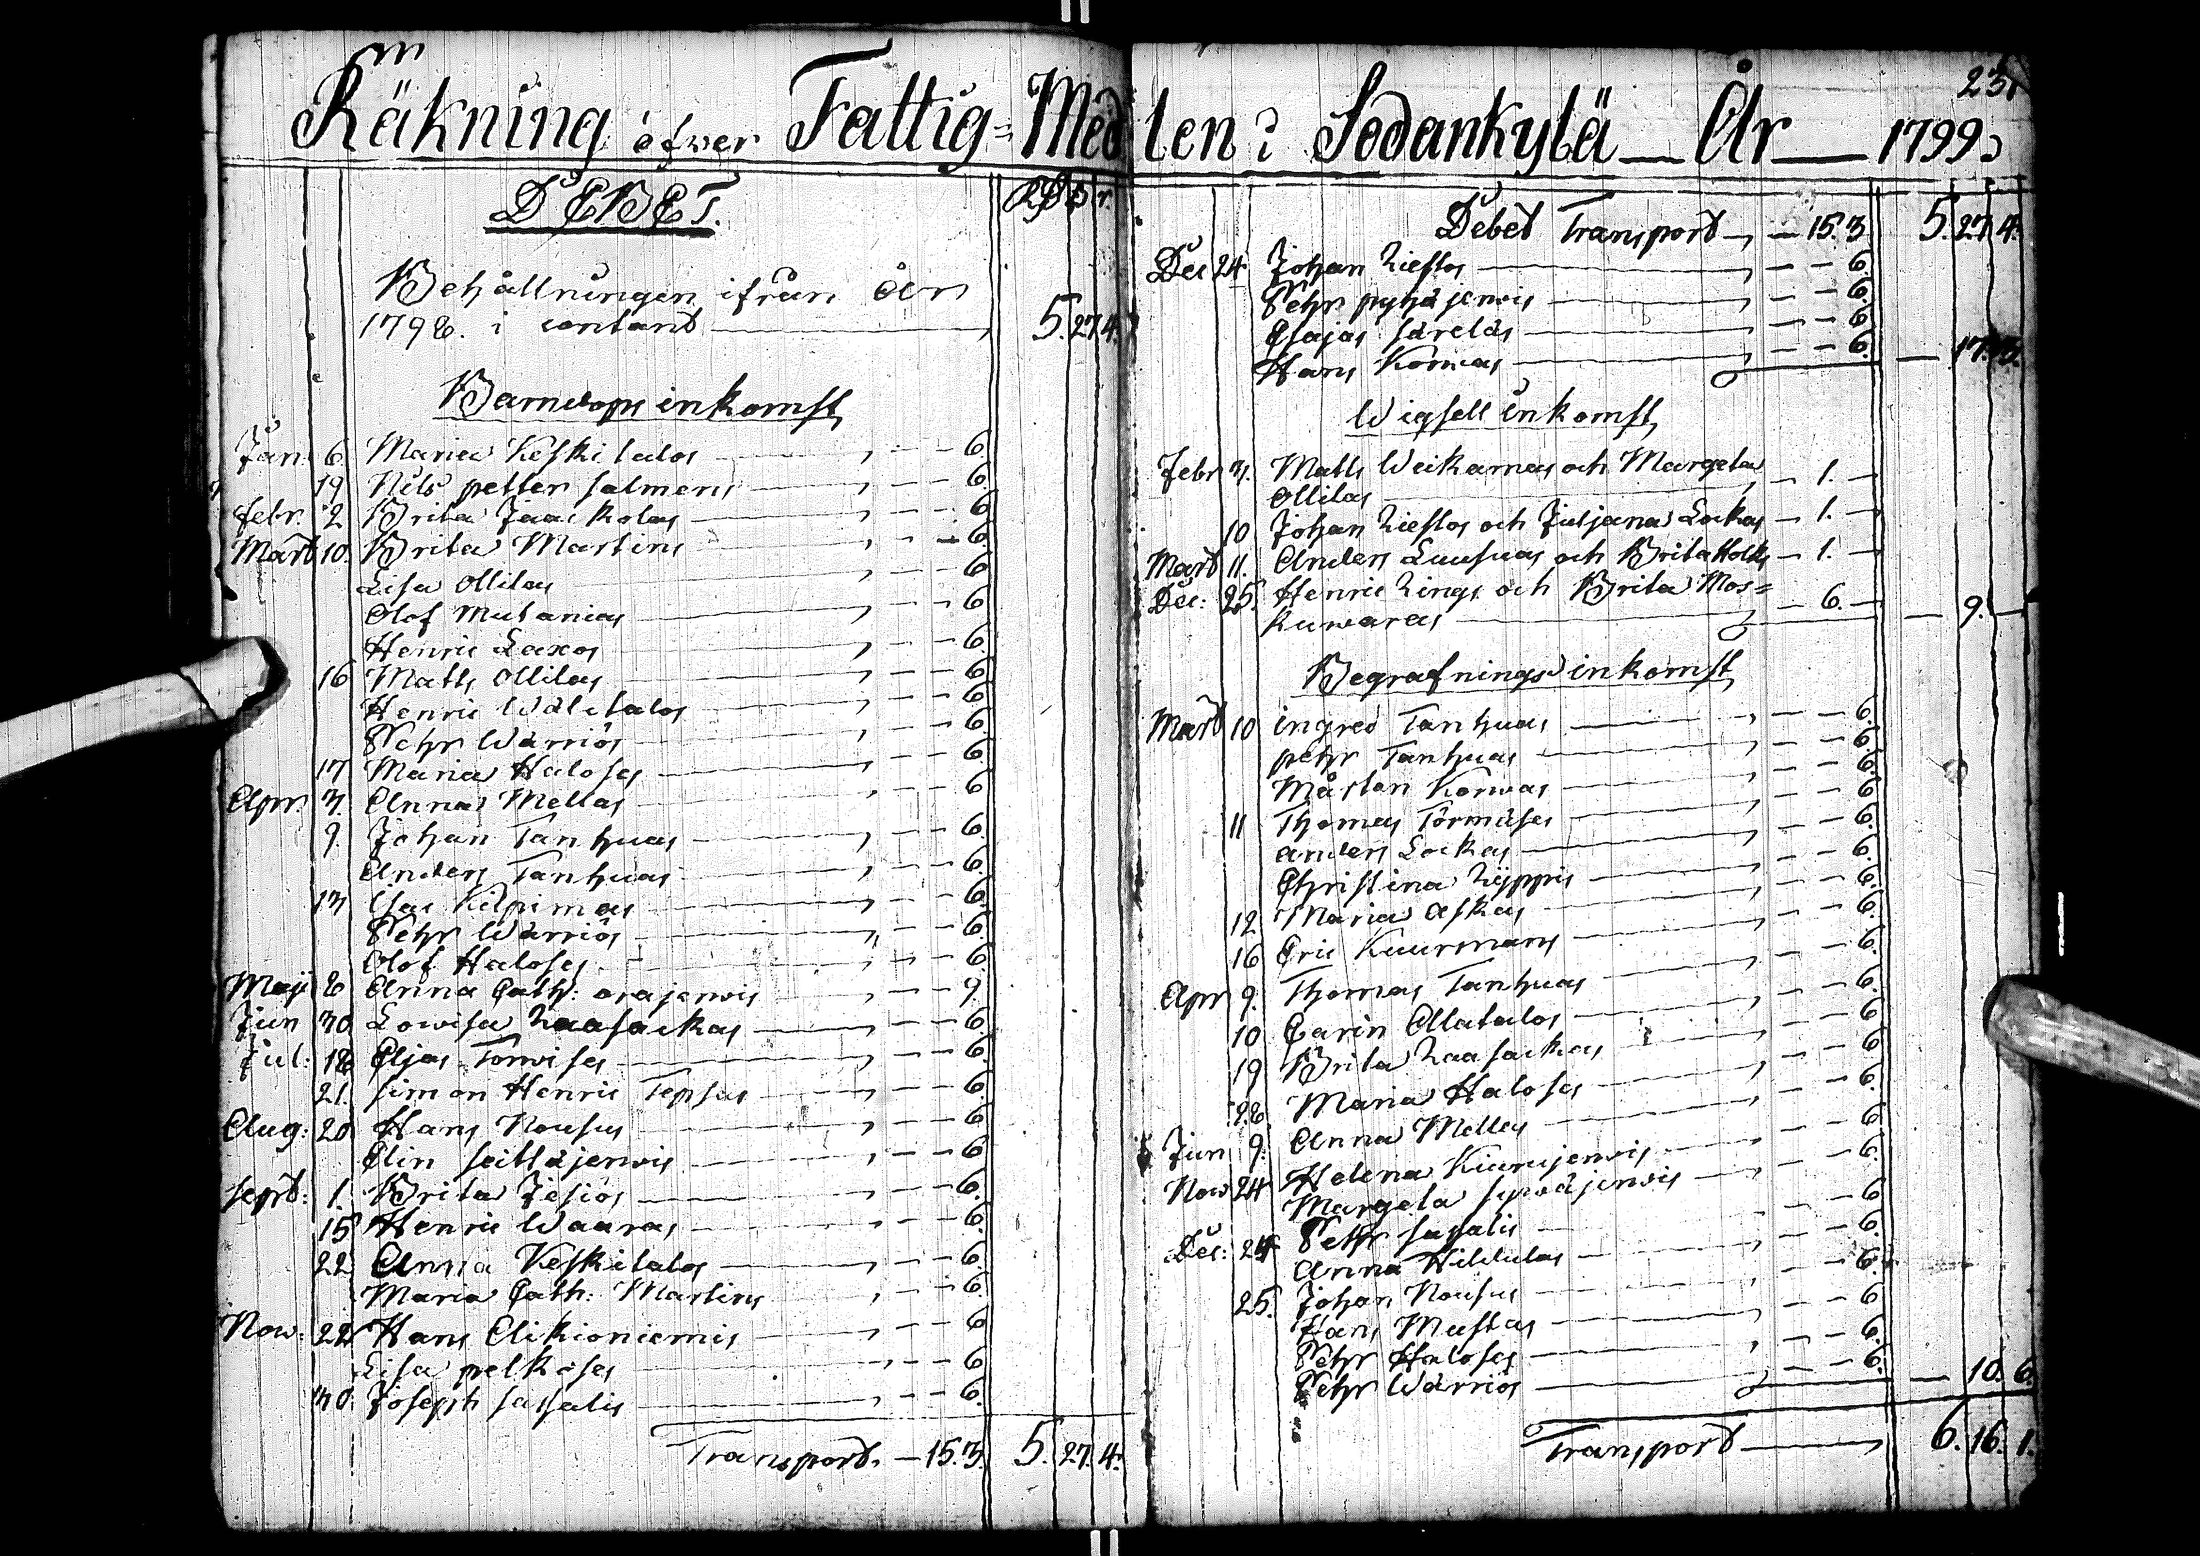 Räkning öfwer Fattig=Medlen i Sodankylä — År — 1799.
DEBET.
Behållningen ifrån År
1798. i contant — 5. 27. 4.
Barndops inkomst
Jan: 6. Maria Keskitalos — 6.
19 Nils petter salmens — 6.
Febr. 2 Brita Jaaskolas — 6
Mart 10. Brita Martins — 6
Lisa Ollilas — 6
Olof Mutanias — 6
Henric Laxos — 6
16 Matts Ollilas — 6
Henric Wälitalos — 6
Pehr Wärriös — 6
17 Maria Haloses — 6
Apr. 3. Anna Mellas — 6
9. Johan Tanhuas — 6.
Anders Tanhuas — 6.
13 Isac Kilpimas — 6.
Pehr Wärriös — 6.
Olof Haloses — 6.
Maji 8 Anna Cath: orajerwis — 9.
Jun 30 Lowisa Raasackas — 6.
Jul: 18 Elias Torwises — 6.
21. simon Henric Tepsas — 6
Aug: 20 Hans Nousus — 6
Elin seittäjerwis — 6
sept: 1. Brita Jesiös — 6.
15 Henric Waaras — 6.
22 Anna Keskitalos — 6.
Maria Cath: Martins — 6.
Now: 22 Hans Alikioniemis — 6
Lisa pelkoses — 6
30. Joseph sassalis — 6.
Transport. — 15. 3. 5. 27. 4.
23
Debet Transport — 15. 3 5. 27. 4.
Dec 24 Johan Riestos — 6.
Pehr pyhäjerwis — 6.
Esajas säreläs — 6
Hans Korwas — 6. — 17. 3.
Wigsell inkomst
Febr 3. Matts Weikamas och Margeta
Ollilas — 1. —
10 Johan Riestos och Juljana Lockas — 1. —
Mart 11. Anders Luusuas och Brita — 1. —
Dec: 25. Henric Rings och Brita Mos=
kuwaras — 6. — 9. —
Begrafnings inkomst
Mart 10 ingred Tanhuas — 6.
petter Tanhuas — 6.
Mårten Korwas — 6.
11 Thomas Törmäses — 6
anders Lockas — 6.
Christina Ryppis — 6.
12 Maria Askas — 6.
16 Eric Kuurmans — 6.
Apr 9. Thomas Tanhuas — 6.
10 Carin Alatalos — 6.
19 Brita Raasackas — 6
28 Maria Haloses — 6.
Jun 9. Anna Mellas — 6
Now 24 Helena Kiurujerwis — 6.
Margeta sywäjerwis — 6
Pehr sassalis — 6
Dec: 24 Anna Hiltulas — 6.
25. Johan Nousus — 6
Hans Mustas — 6
Pehr Haloses — 6.
Pehr Wärriös — 6. — 10. 6.
Transport — 6. 16. 1.